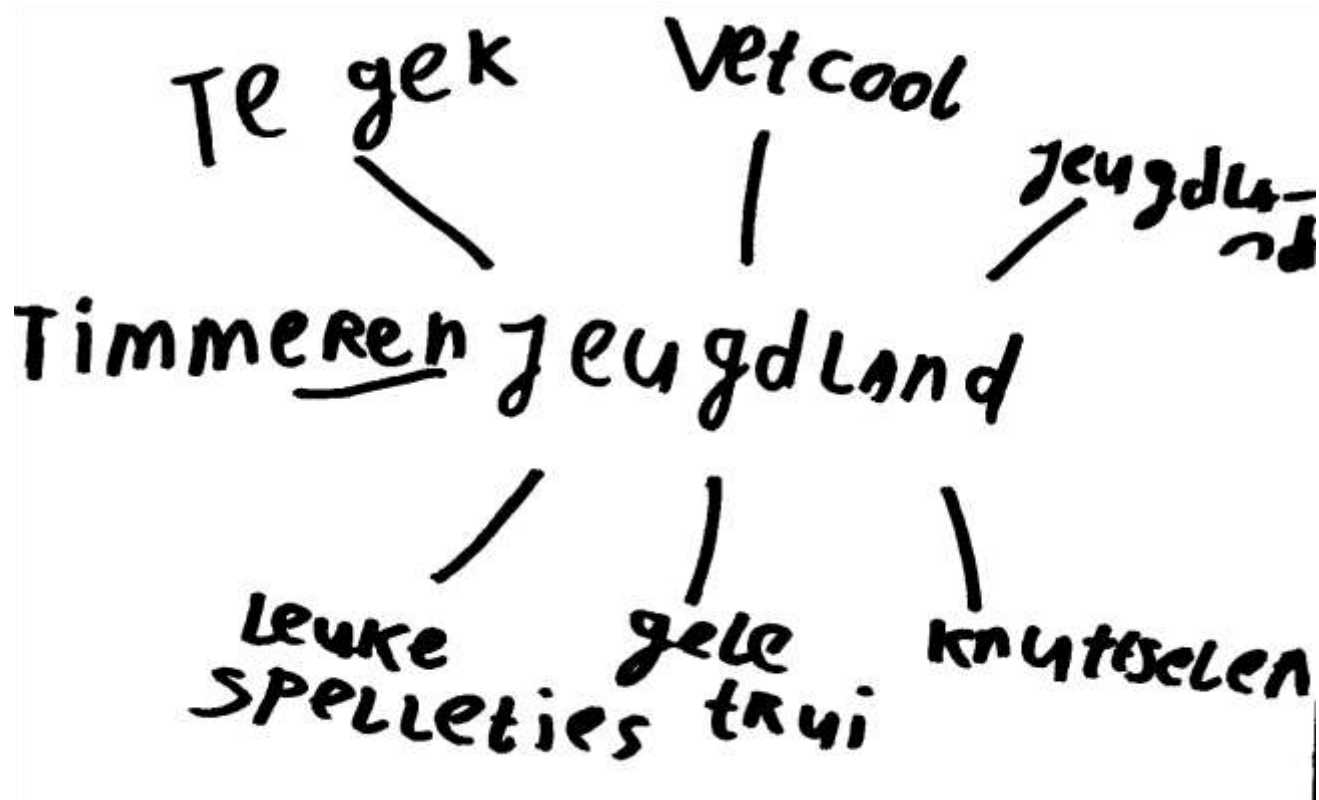 Te gek
Vetcool
jeugdla-
nd
Timmeren jeugdland
Leuke
spelleties
gele
trui
knuttselen